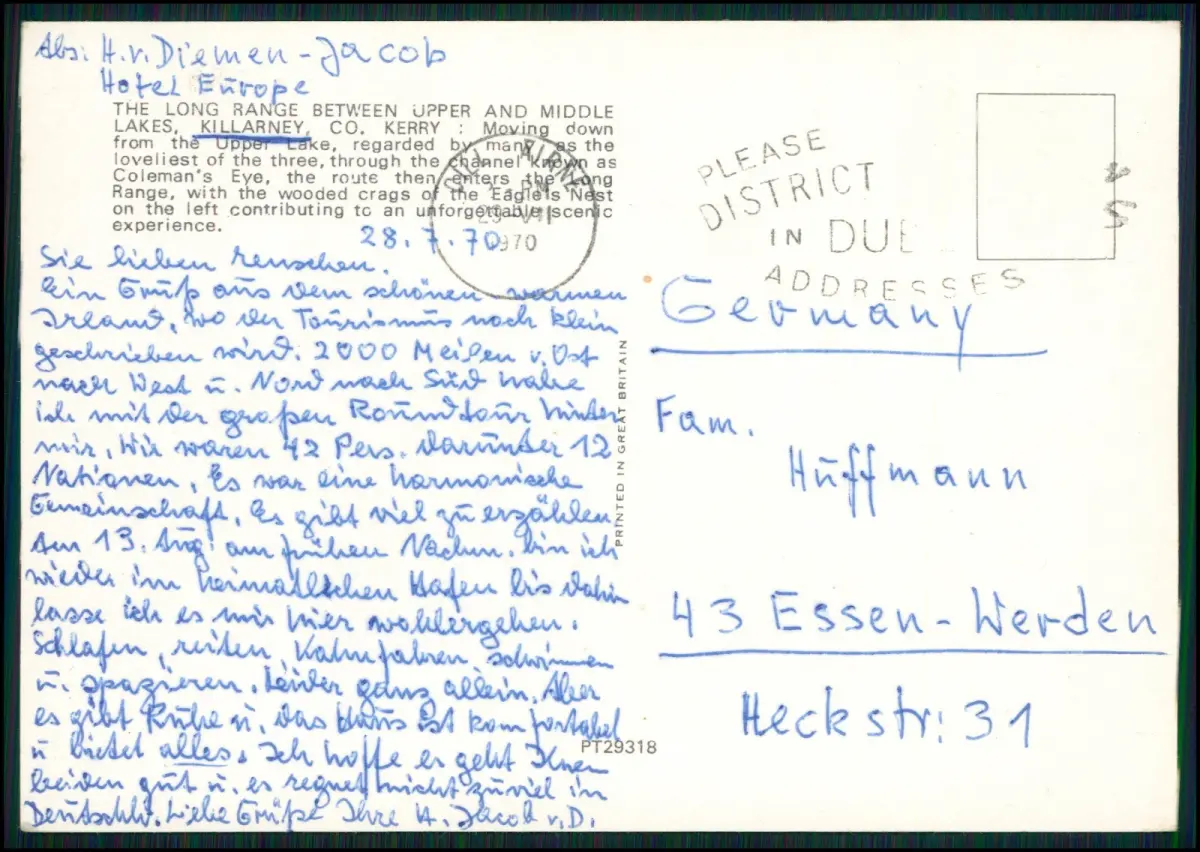 Abs: H.v.Diemen-Jacob
Hotel Europe
THE LONG RANGE BETWEEN UPPER AND MIDDLE
LAKES, KILLARNEY, CO. KERRY : Moving down
from the Upper Lake, regarded by many as the
loveliest of the three, through the channel known as
Coleman's Eye, the route then enters the Long
Range, with the wooded crags of the Eagle's Nest
on the left contributing to an unforgettable scenic
experience.
28.7.70
Sie lieben Menschen.
Ein Gruß aus dem schönen warmen
Irland, wo der Tourismus noch klein
geschrieben wird. 2000 Meilen v. Ost
nach West u. Nord nach Süd habe
ich mit der großen Roundtour hinter
mir. Wir waren 42 Pers. darunter 12
Nationen. Es war eine harmonische
Gemeinschaft. Es gibt viel zu erzählen
Am 13. Aug. am frühen Nachm. bin ich
wieder im heimatlichen Hafen bis dahin
lasse ich es mir hier wohlergehen.
Schlafen, reiten, Kahnfahren, schwimmen
u. spazieren. Leider ganz allein. Aber
es gibt Ruhe u. das Haus ist komfortabel
u bietet alles. Ich hoffe es geht Ihnen
beiden gut u. es regnet nicht zuviel in
Deutschl. Liebe Grüße Ihre H. Jacob v.D.
PRINTED IN GREAT BRITAIN
PT29318
CILL AIRNE
PM
29 VII
1970
PLEASE
DISTRICT
IN DUE
ADDRESSES
Germany
Fam.
Hüffmann
43 Essen-Werden
Heckstr: 31